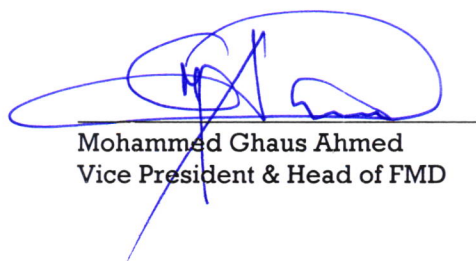 Mohammed Ghaus Ahmed
Vice President & Head of FMD